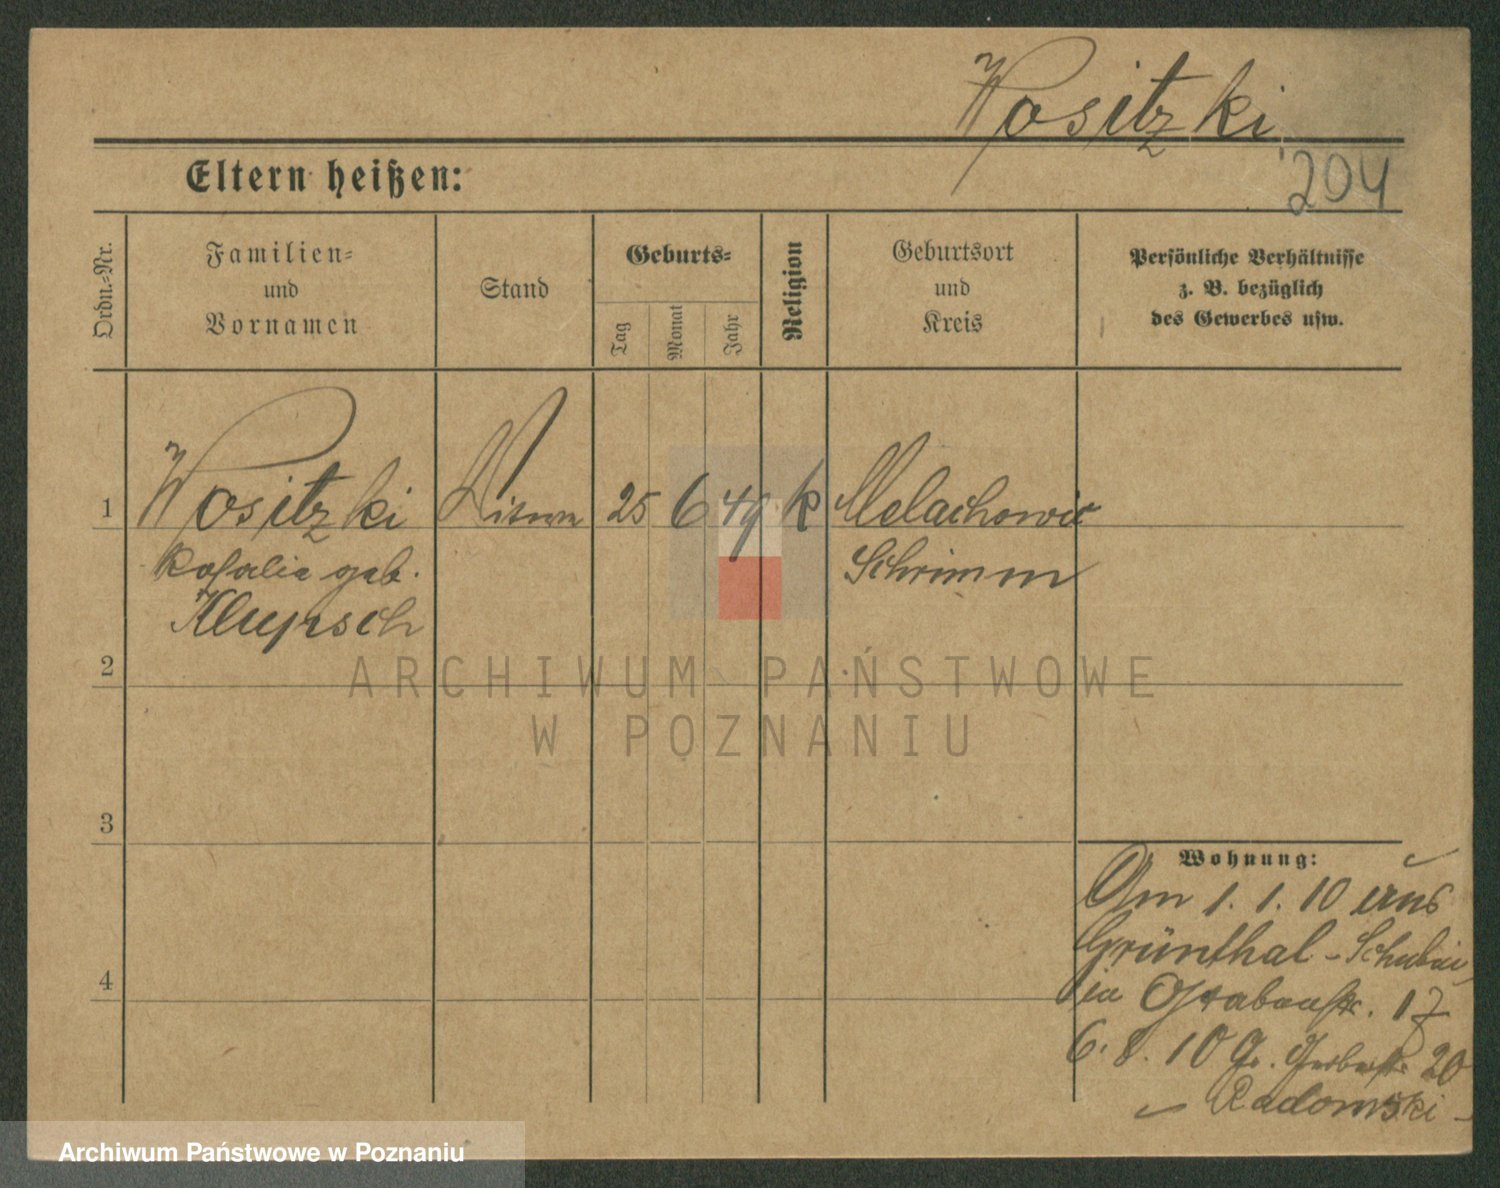 Wositzki
204
Eltern heißen:
Ordn.-Nr.
Familien-
und
Vornamen
Stand
Geburts-
Tag
Monat
Jahr
Religion
Geburtsort
und
Kreis
Persönliche Verhältnisse
z. B. bezüglich
des Gewerbes usw.
1 Wositzki Witwe 25 6 49 k Melachowic
Rosalie geb. Schrimm
2
3
4
Wohnung:
Am 1. 1. 10 aus
Grünthal - Schubin
in Grabenstr. 17
6. 8. 10 Gr. Gerberstr. 20
Radomski
ARCHIWUM PAŃSTWOWE
W POZNANIU
Archiwum Państwowe w Poznaniu